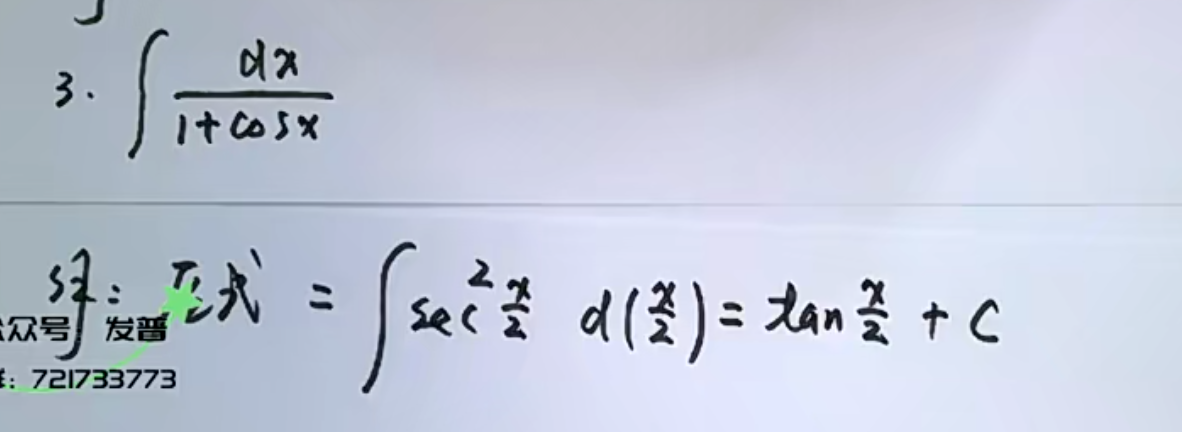 3. ∫ dx / (1+cosx)
解: 原式 = ∫ sec² x/2 d(x/2) = tan x/2 + C
众号: 发普
: 721733773